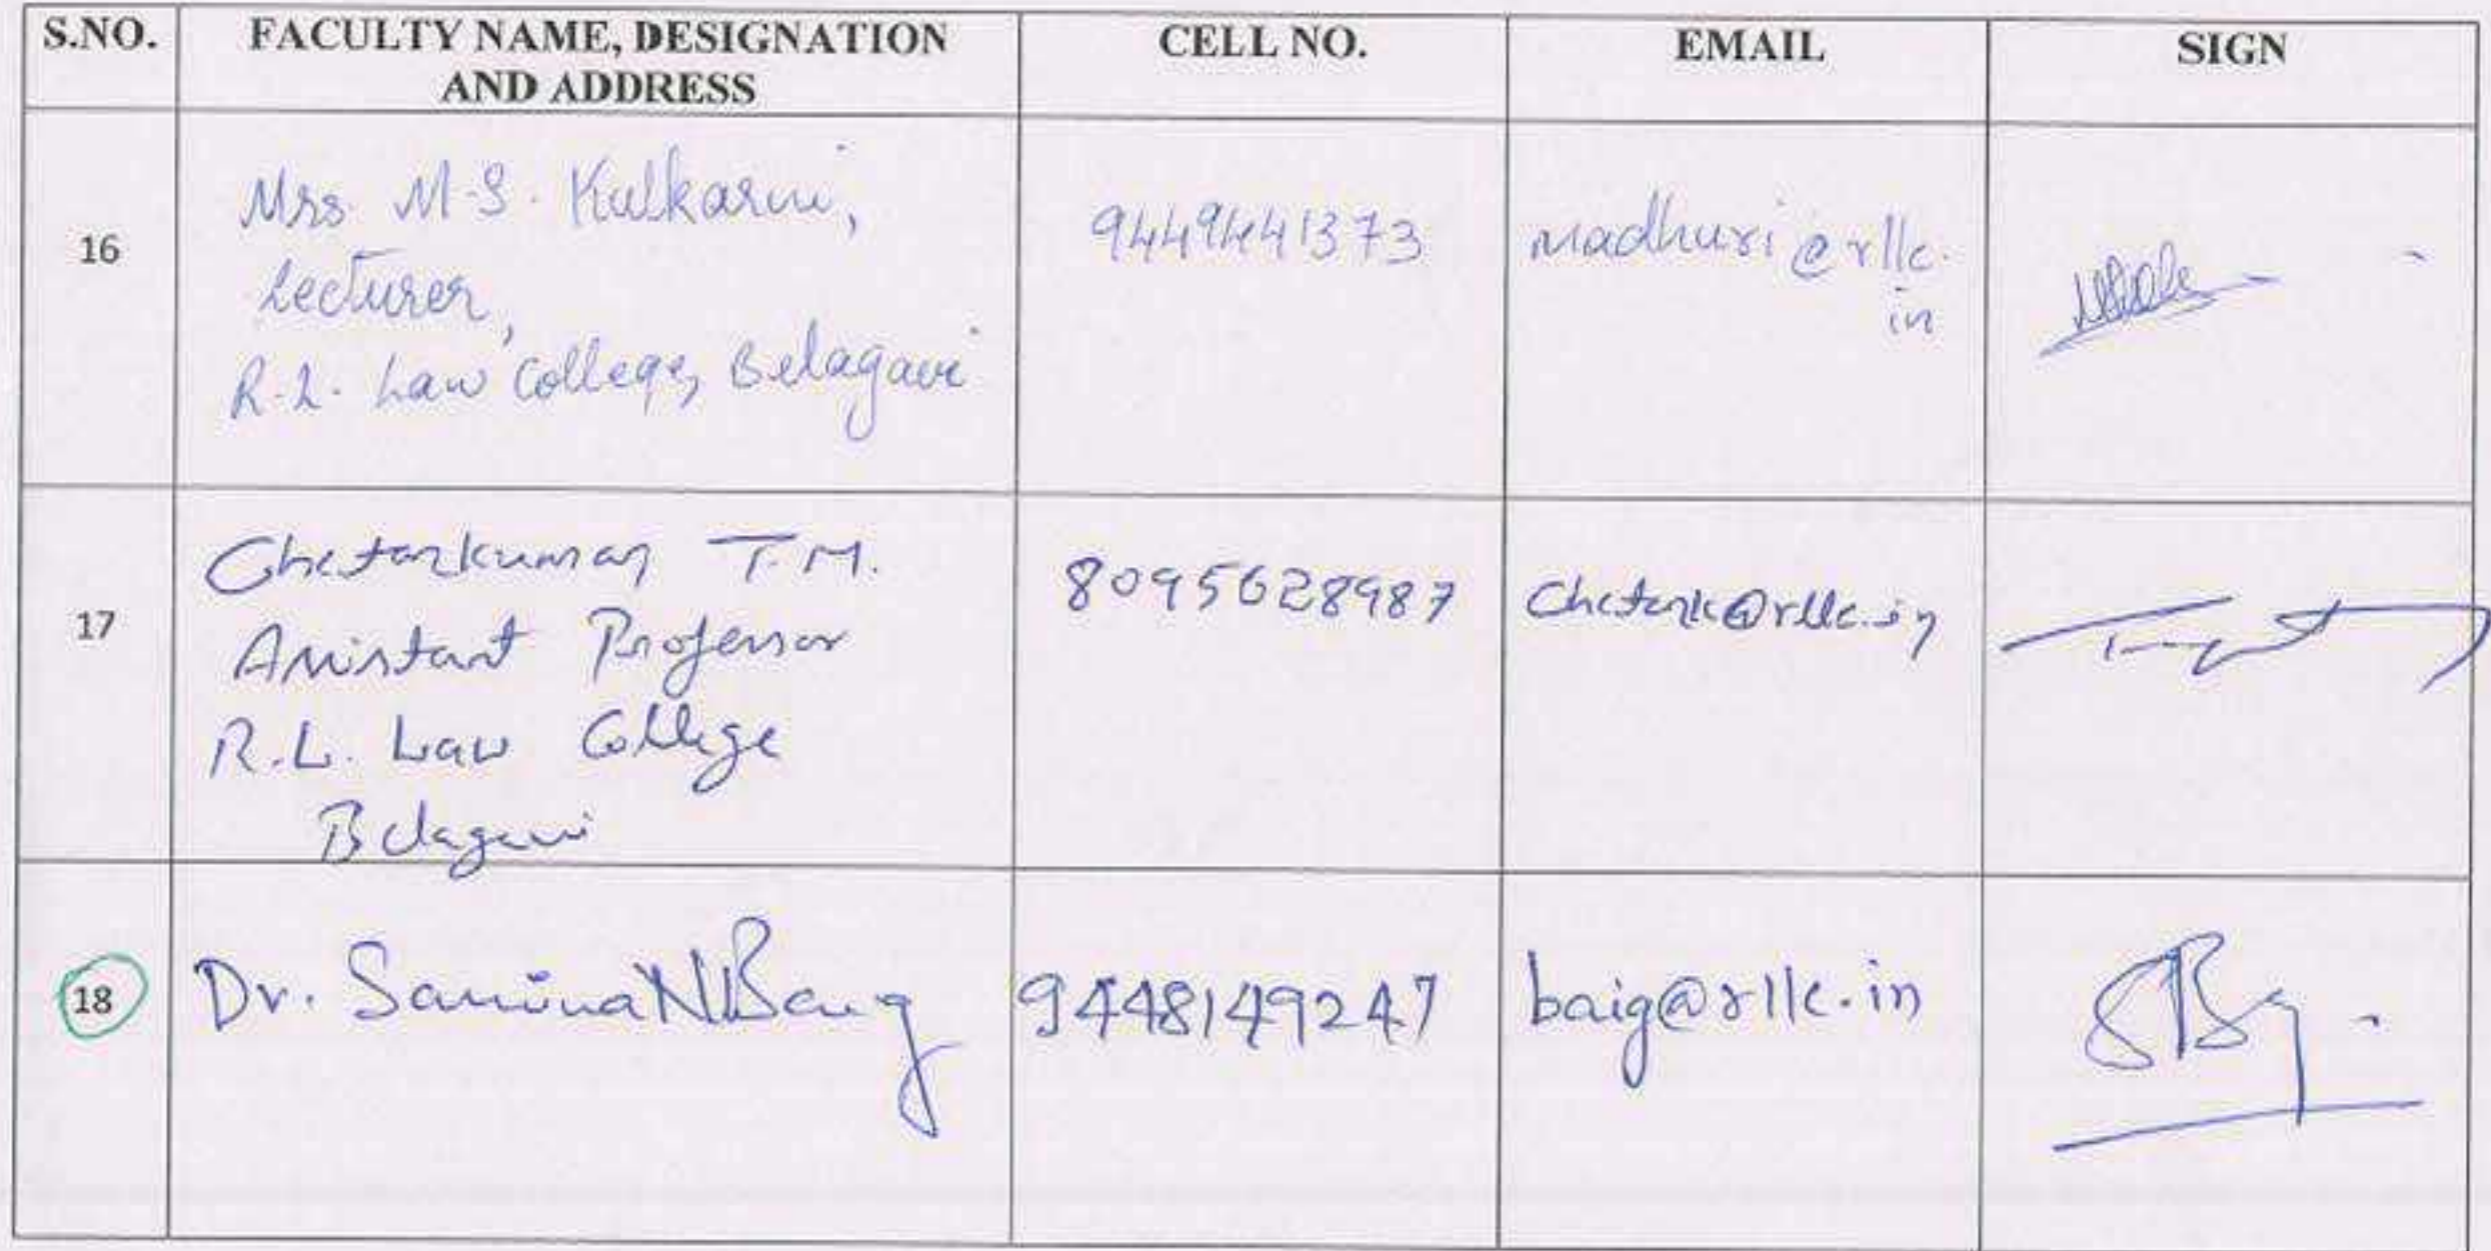 S.NO. FACULTY NAME, DESIGNATION AND ADDRESS CELL NO. EMAIL SIGN
16
Mrs. M.S. Kulkarni,
Lecturer,
R.L. Law College, Belagavi
9449441373
madhuri@rllc.
in
17
Chetankumar T.M.
Assistant Professor
R.L. Law College
Belagavi
8095628987
Chetank@rllc.in
18
Dr. Samina N Baig
9448149247
baig@rllc.in